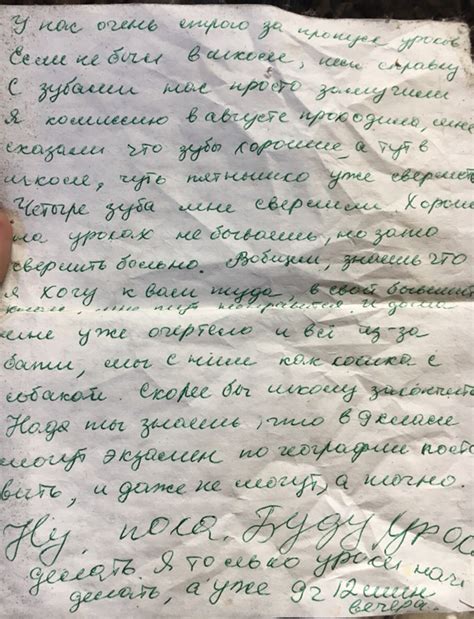 У нас очень строго за пропуск уроков
Если не был в школе, неси справку
С зубами нас просто замучили
Я комиссию в августе проходила, мне
сказали что зубы хорошие, а тут в
школе, чуть пятнышко уже сверлить
Четыре зуба мне сверлили. Хорошо
на уроках не бываешь, но зато
сверлить больно. Вобщем, знаешь что
я хочу к вам туда, в свой бывший
мне тут не нравится. и дома
мне уже очертело и всё из-за
бати, мы с ним как кошка с
собакой. Скорее бы школу закончить
Надя ты знаешь, что в 9 классе
могут экзамен по географии поста
вить, и даже не могут, а точно.
Ну, пока. Буду уроки
делать. Я только уроки нач
делать, а уже 9г 12 мин
вечера.